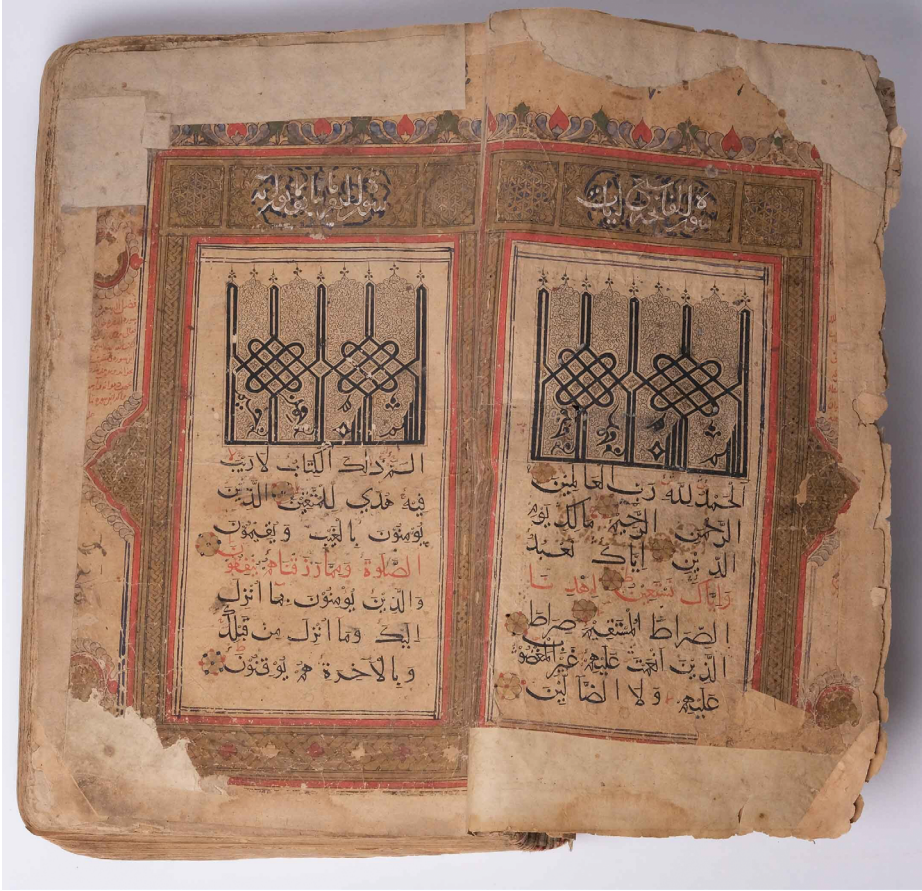 سورة الفاتحة سبع ايات
بسم الله الرحمن الرحيم
الحمد لله رب العالمين
الرحمن الرحيم مالك يوم
الدين اياك نعبد
واياك نستعين اهدنا
الصراط المستقيم صراط
الذين انعمت عليهم غير المغضوب
عليهم ولا الضالين
سورة
بسم الله الرحمن الرحيم
الم ذلك الكتاب لا ريب
فيه هدى للمتقين الذين
يومنون بالغيب ويقيمون
الصلوة ومما رزقناهم ينفقون
والذين يومنون بما انزل
اليك وما انزل من قبلك
وبالاخرة هم يوقنون